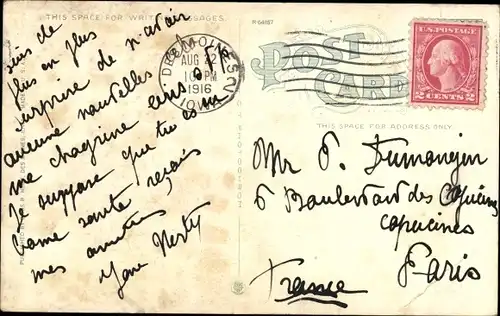 THIS SPACE FOR WRITING MESSAGES
R-64187
suis de
plus en plus
surprise de n'avoir
aucune nouvelles
me chagrine
Je suppose que tu
bonne santé, reçois
mes amitiés
DES MOINES
AUG 22
10 PM
1916
IOWA
POST
CARD
U.S. POSTAGE
2 CENTS 2
THIS SPACE FOR ADDRESS ONLY
Mr P. Dumangin
6 Boulevard des Capucines
capucines
Paris
France